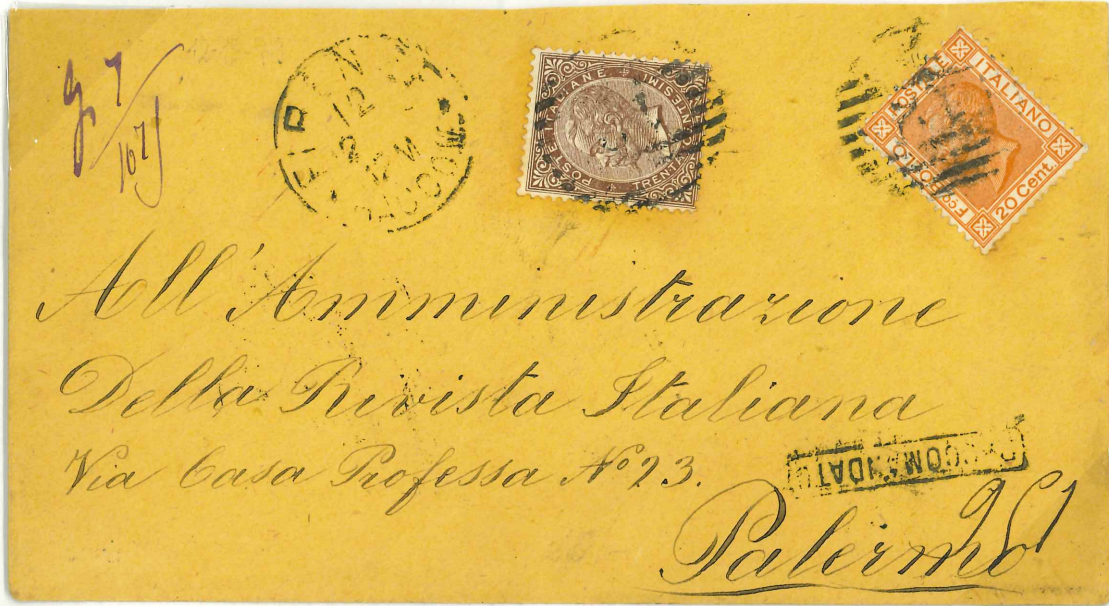 FIRENZE
12
12 M
RACCOM
POSTE ITALIANE
TRENTA CENTESIMI
FCO BOLLO POSTALE ITALIANO
20 Cent.
All'Amministrazione
Della Rivista Italiana
Via Casa Professa No 23.
RACCOMANDATO
Palermo